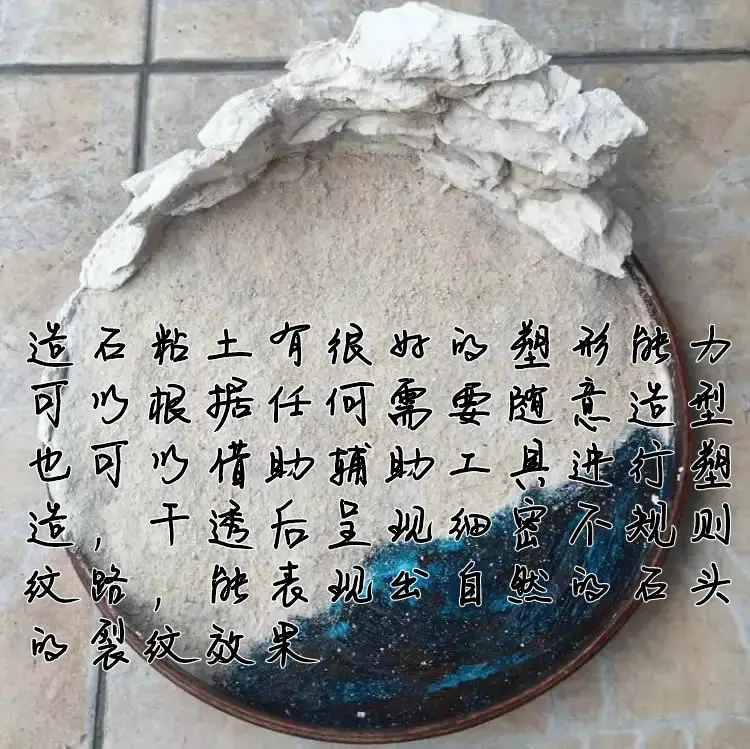 造石粘土有很好的塑形能力
可以根据任何需要随意造型
也可以借助辅助工具进行塑
造，干透后呈现细密不规则
纹路，能表现出自然的石头
的裂纹效果